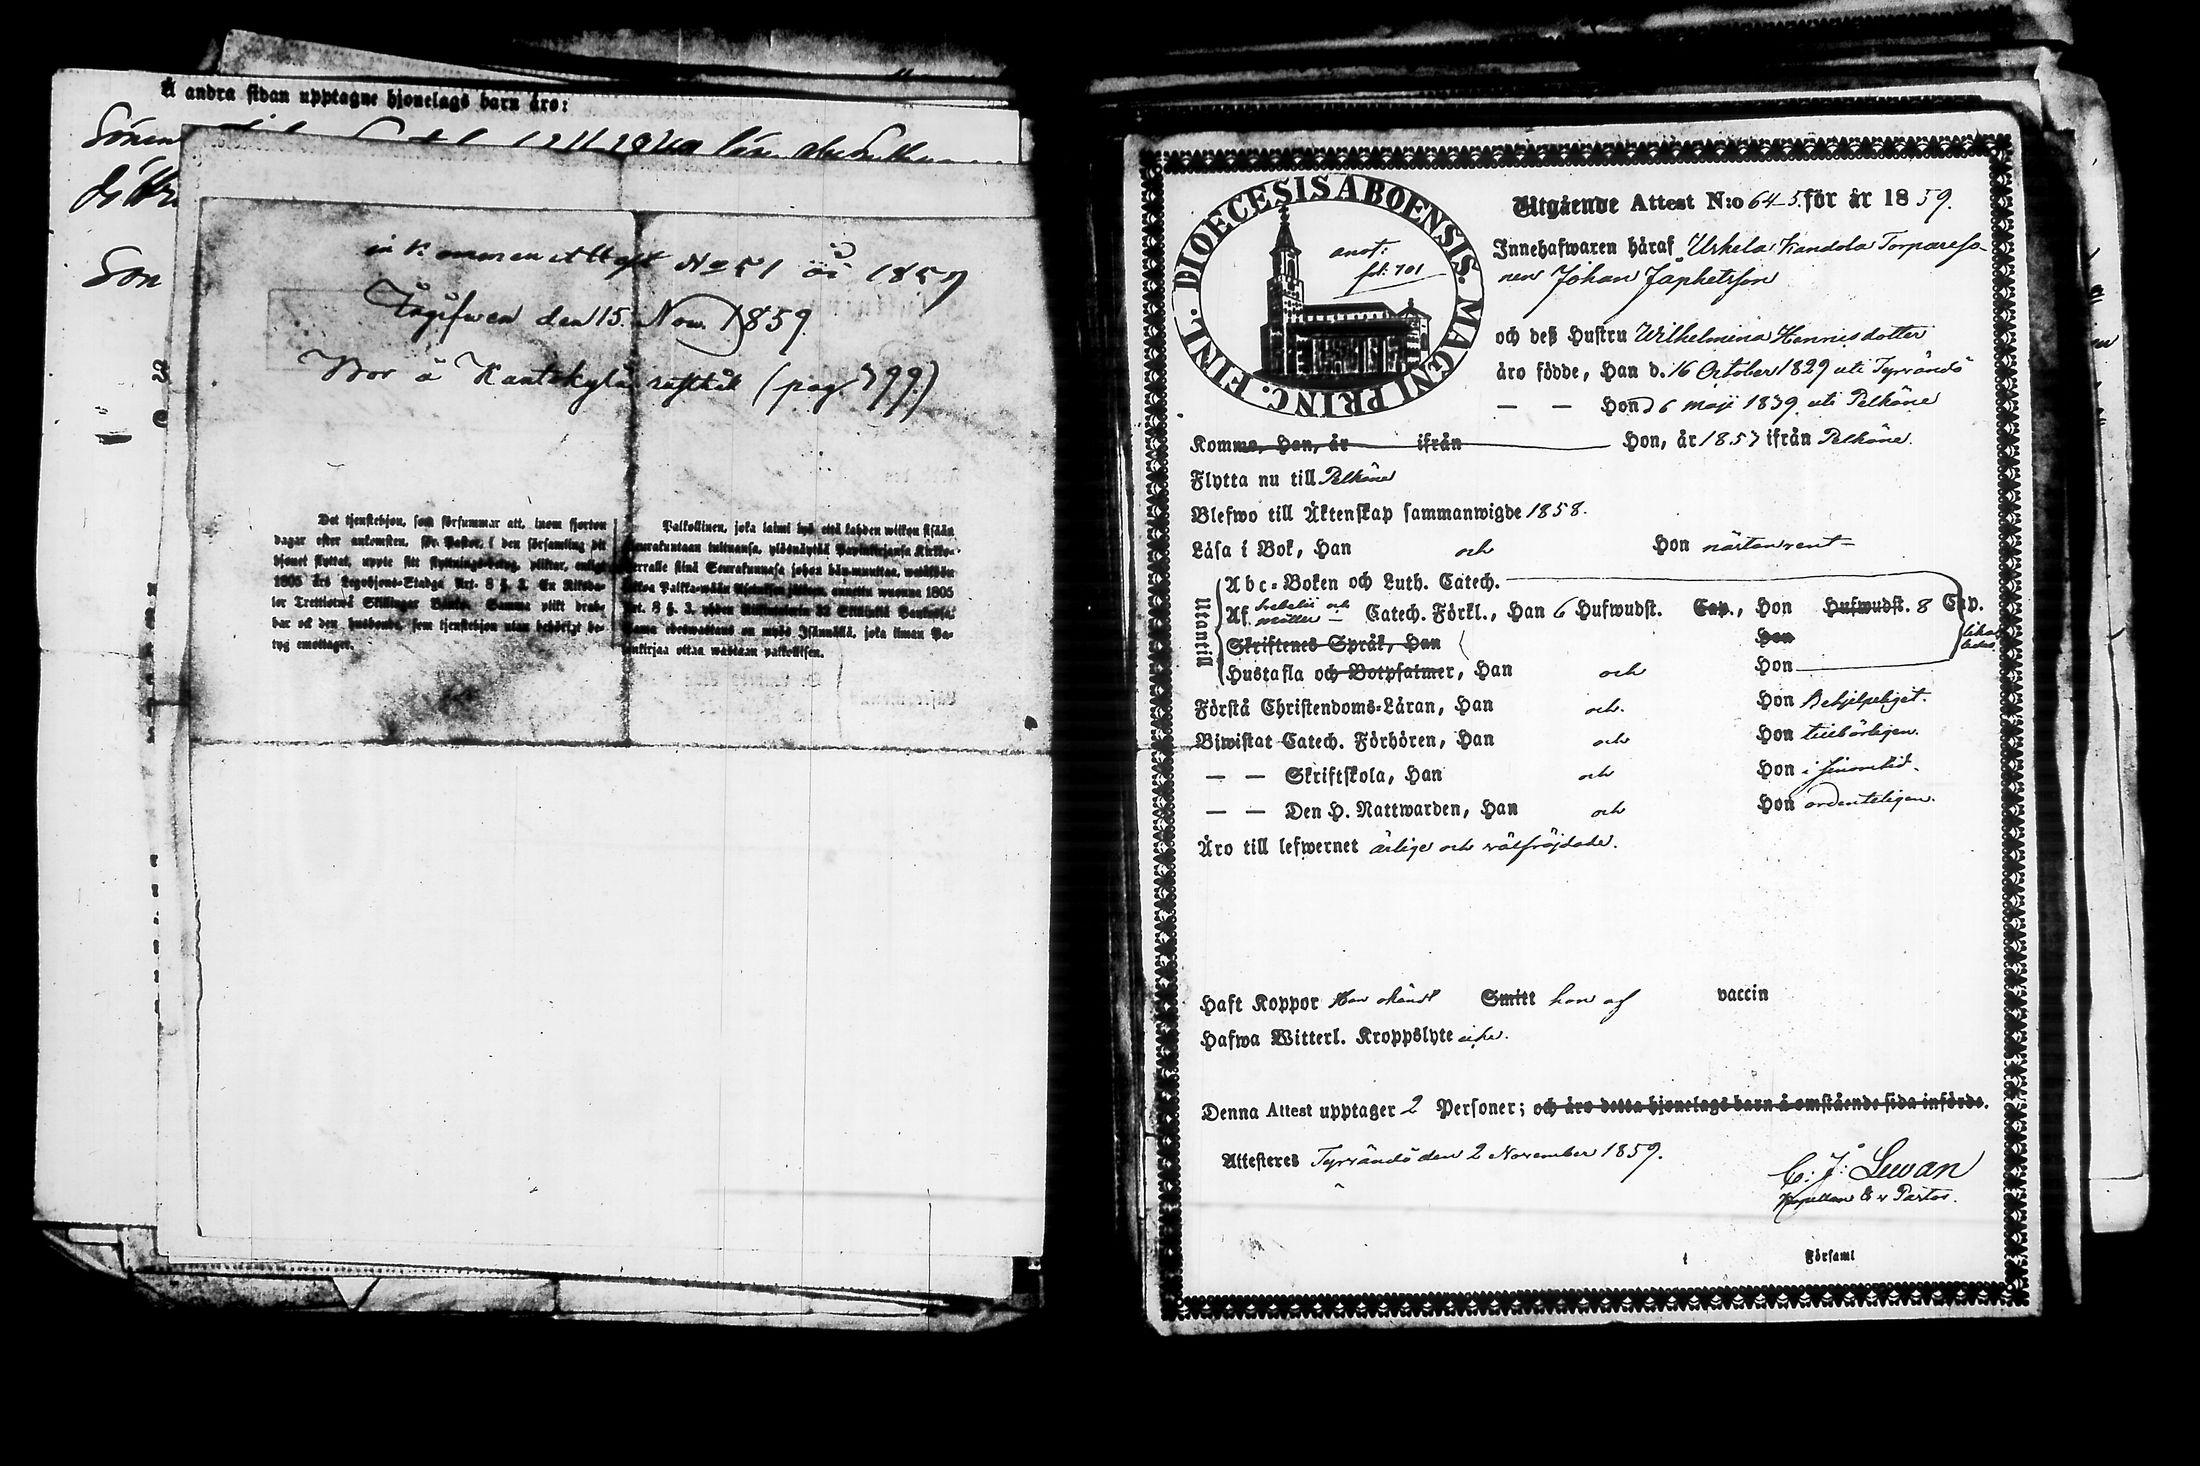 Å andra sidan upptagne hjonelags barn äro:
Sönen
Son
in kommen Attest No 51 år 1859
Uppgifwen den 15. Nov. 1859
Bor å Kantokylä rusthåll (pag. 799.)
Det tjenstehjon, som försummar att, inom fjorton
dagar efter ankomsten, för Pastor, i den församling dit
hjonet flyttat, uppte sitt flyttnings-betyg, pliktar, enligt
1805 års Legohjons-Stadga Art. 8 §. 3. En Riksda-
ler Trettiotwå Skillingar Banko. Samma plikt drab-
bar ock den husbonde, som tjenstehjon utan behörigt be-
tyg emottager.
Palkollinen, joka laimi lyö että kahden wiikon sisään
Seurakuntaan tultuansa, ylösnäyttää Papinkirjansa Kirkko-
herralle siinä Seurakunnasa johon hän muuttaa, wetäköön
sakkoa Palkka-wäen Asetuksen jälkeen, annettu wuonna 1805
Art. 8 §. 3. yhden Riikintalarin 32 Skillinkiä Bankosa.
Sama edeswastaus on myös Isännällä, joka ilman Pa-
pinkirjaa ottaa wastaan palkollisen.
DIOECESIS ABOENSIS. MAGNI PRINC. FINL.
anot:
fol. 701
Utgående Attest N:o 645. för år 1859.
Innehafwaren häraf Uskela Kandola Torpareso-
nen Johan Japhetsson
och deß Hustru Wilhelmina Hennisdotter
äro födde, Han d. 16 October 1829 uti Tyrvändö
— — Hon d 6 maji 1839. uti Pelkäne
Komma, Han, år ifrån Hon, år 1857 ifrån Pelkäne.
Flytta nu till Pelkäne
Blefwo till Äktenskap sammanwigde 1858.
Läsa i Bok, Han och Hon nästan rent
Utantill
Abc-Boken och Luth. Catech.
Af Svebelii och Möller Catech. Förkl., Han 6 Hufwudst. Cap., Hon Hufwudst. 8 Cap.
Skriftenes Språk, Han Hon
likaledes
Hustafla och Botpsalmer, Han och Hon
Förstå Christendoms-Läran, Han och Hon Behjelpeligit.
Biwistat Catech. Förhören, Han och Hon tillbörligen.
— — Skriftskola, Han och Hon i sinom tid.
— — Den H. Nattwarden, Han och Hon ordenteligen.
Äro till lefwernet ärlige och välfräjdade.
Haft Koppor Han okändt Smitt hon af vaccin
Hafwa Witterl. Kroppslyte icke.
Denna Attest upptager 2 Personer; och äro detta hjonelags barn å omstående sida införde.
Attesteres Tyrvändö den 2 November 1859.
C. J. Lewan
Kapellan & v Pastor.
i Församl